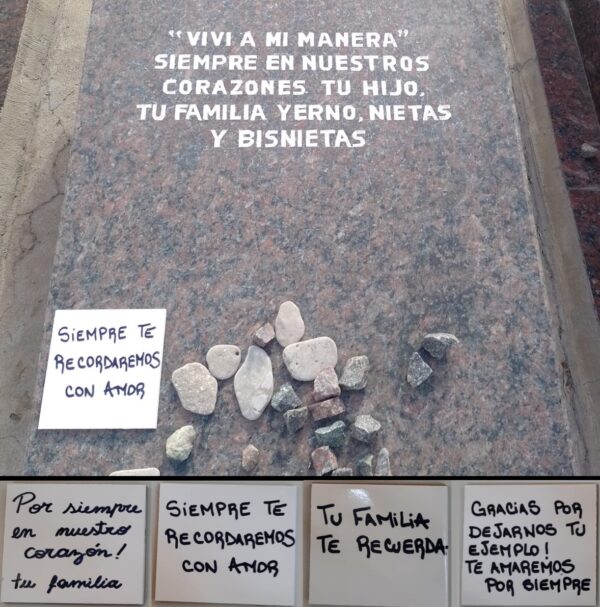 “VIVI A MI MANERA”
SIEMPRE EN NUESTROS
CORAZONES TU HIJO,
TU FAMILIA YERNO, NIETAS
Y BISNIETAS
SIEMPRE TE
RECORDAREMOS
CON AMOR
Por siempre
en nuestro
corazón!
tu familia
SIEMPRE TE
RECORDAREMOS
CON AMOR
TU FAMILIA
TE RECUERDA.
GRACIAS POR
DEJARNOS TU
EJEMPLO!
TE AMAREMOS
POR SIEMPRE